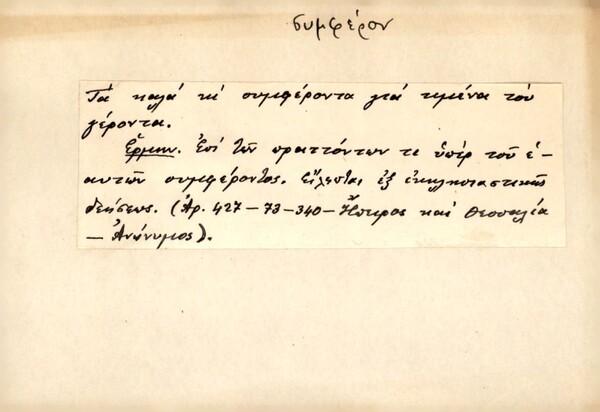 συμφέρον
Τὰ καλά κι συμφέροντα γιά τιμένα τοῦ
γέροντα.
Ἑρμην. Ἐπί τῶν πραττόντων τι ὑπέρ τοῦ ἑ-
αυτῶν συμφέροντος. Εἴληπται ἐξ ἐκκλησιαστικῆς
δεήσεως. (Ἀρ. 427 – 73 – 340 – Ἤπειρος καί Θεσσαλία
– Ἀνώνυμος).